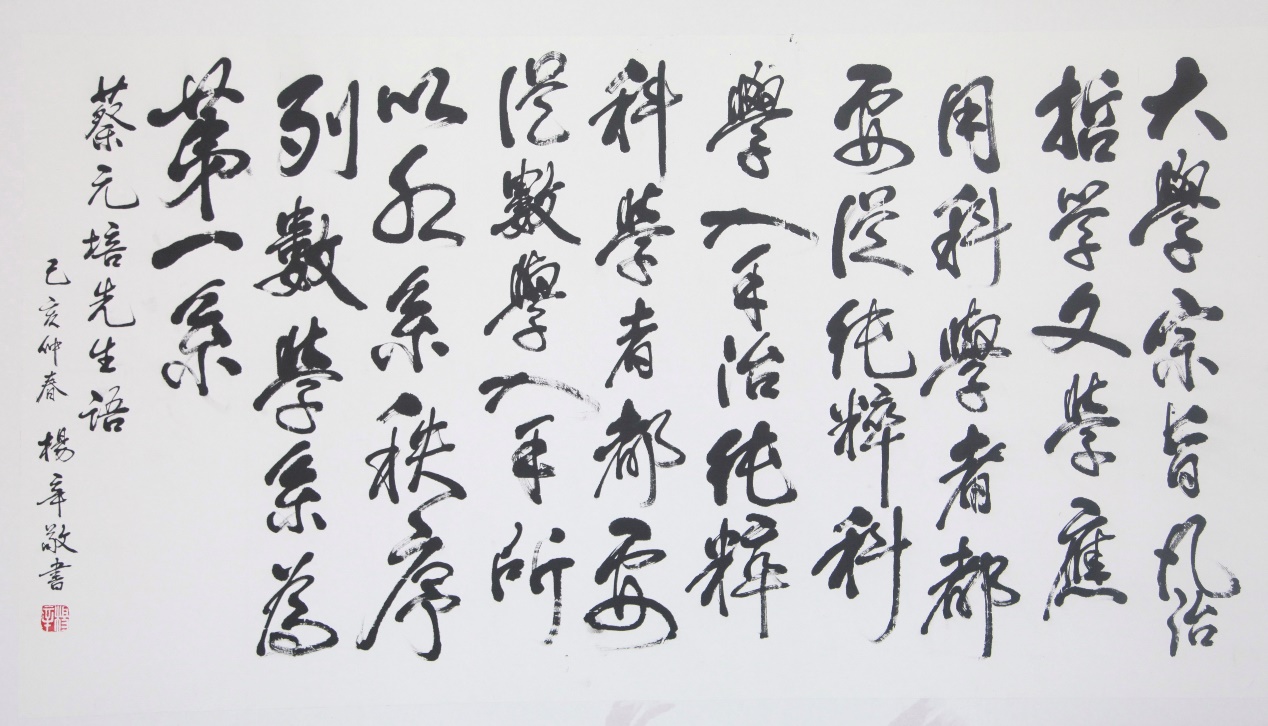 大學宗旨凡治
哲学文學應
用科學者都
要從純粹科
學入手治純粹
科學者都要
從數學入手所
以各系秩序
列數學系為
第一系
蔡元培先生语
己亥仲春 楊辛敬書